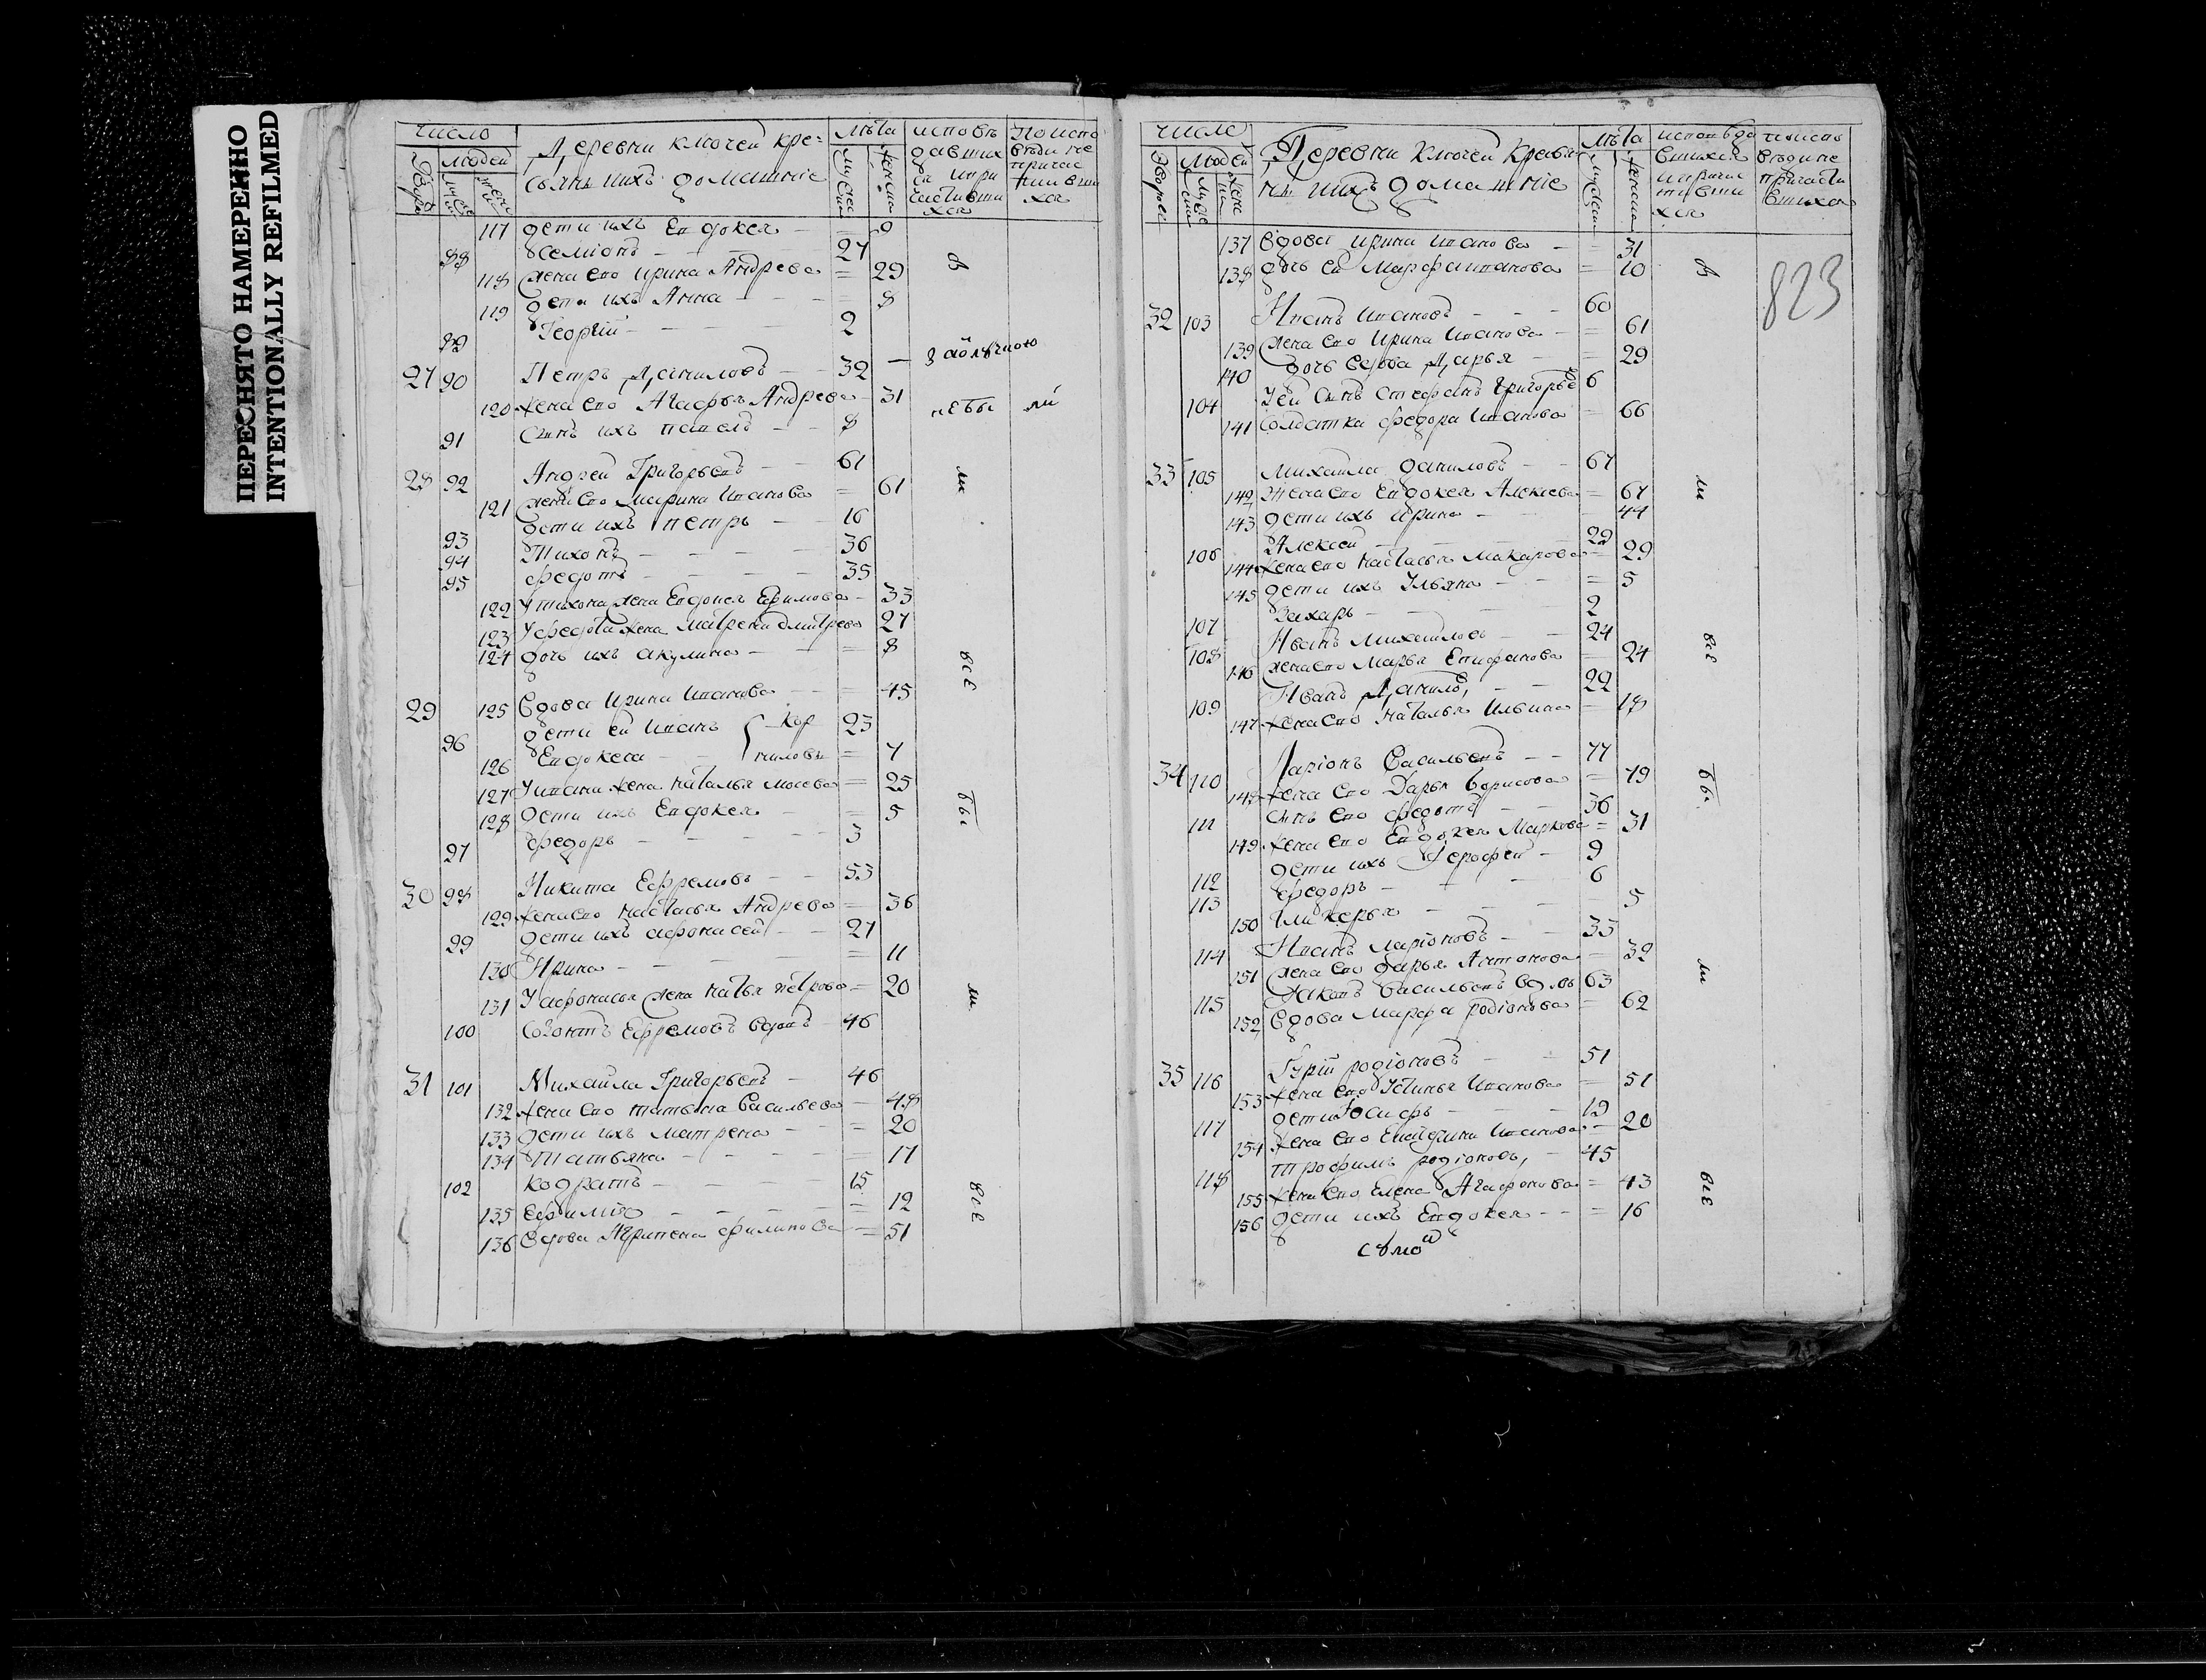 ПЕРЕСНЯТО НАМЕРЕННО
INTENTIONALLY REFILMED
число
людей
Деревни ключей кре-
стьянъ ихъ домашнiе
лѣта
117 дети ихъ Евдокея — = 9
88 Семионъ — 27
118 жена его Ирина Андрева = 29
119 дети ихъ Анна — = 8
89 Георгiй — 2
27 90 Петръ Даниловъ — 32 —
120 жена его Агафья Андрева — 31
91 Сынъ ихъ павелъ — 8
не бы ли
28 92 Андрей Григорьевъ — 61
121 жена его Марина Иванова = 61
93 дети ихъ петръ — 16
94 Тихонъ — 36
95 федотъ — 35
122 У тихона жена Евдокея Ефимова — 33
123 У федота жена Матрена дмитрева 27
124 дочь ихъ акулина — = 8
29 125 Вдова Ирина Иванова — = 45
96 дети ей Иванъ 23
Кор
ниловы
126 Евдокея — = 7
127 У ивана жена Наталья Мосева = 25
128 дети ихъ Евдокея — = 5
97 федоръ — 3
30 98 Никита Ефремовъ — 53
129 жена его Настасья Андрева = 36
99 дети ихъ афонасей — 27
130 Ирина — = 11
131 У афонасья жена Наталья петрова = 20
100 Созонтъ Ефремовъ вдовъ 46
31 101 Михайла Григорьевъ — 46
132 жена его татьяна Васильева — 48
133 дети ихъ матрена — = 20
134 Татьяна — = 17
102 Кодратъ — 15
135 Ефимiя — = 12
136 Вдова Агрипена филипова = 51
все
бы
ли
все
числе
Людей
Деревни Ключей Кресья
нъ ихъ домашнiе
лѣта
823
137 Вдова Ирина Иванова — = 31
138 дочь ей Марфа Иванова = 10
32 103 Иванъ Ивановъ — 60
139 жена его Ирина Иванова — = 61
140 дочь вдова Дарья — = 29
104 У ей Сынъ Стефанъ Григорье 6
141 Солдатка федора Иванова = 66
33 105 Михайла даниловъ — 67
142 Жена его Евдокея Алексева = 67
143 дети ихъ Ирина — 44
106 Алексей — 29
144 жена его Настасья Макарова = 29
145 дети ихъ Ульяна — = 5
107 Захаръ — 2
108 Иванъ Михайловъ — 24
146 жена его Марья Епифанова = 24
109 Иванъ Данило, — 22
147 жена его Наталья Ильина = 18
34 110 Ларiонъ Васильевъ — 77
148 жена его Дарья Борисова = 79
111 Сынъ его федотъ — 36
149 жена его Евдокея Маркова = 31
112 дети ихъ Ерофей — 9
113 федоръ — 6
150 Гликерья — 5
114 Иванъ Ларiоновъ — 33
151 жена его дарья Антонова = 32
115 Яковъ Васильевъ вдовъ 63
152 Вдова Марфа родiонова = 62
35 116 Гурiй родiоновъ — 51
153 жена его Устинья Иванова = 51
117 дети Iосифъ — 19
154 жена его Екатерина Иванова — 20
118 Трофимъ родiоновъ, — 45
155 жена его Елена Агафонова = 43
156 дети ихъ Евдокея — = 16
ли
все
бы
ли
все